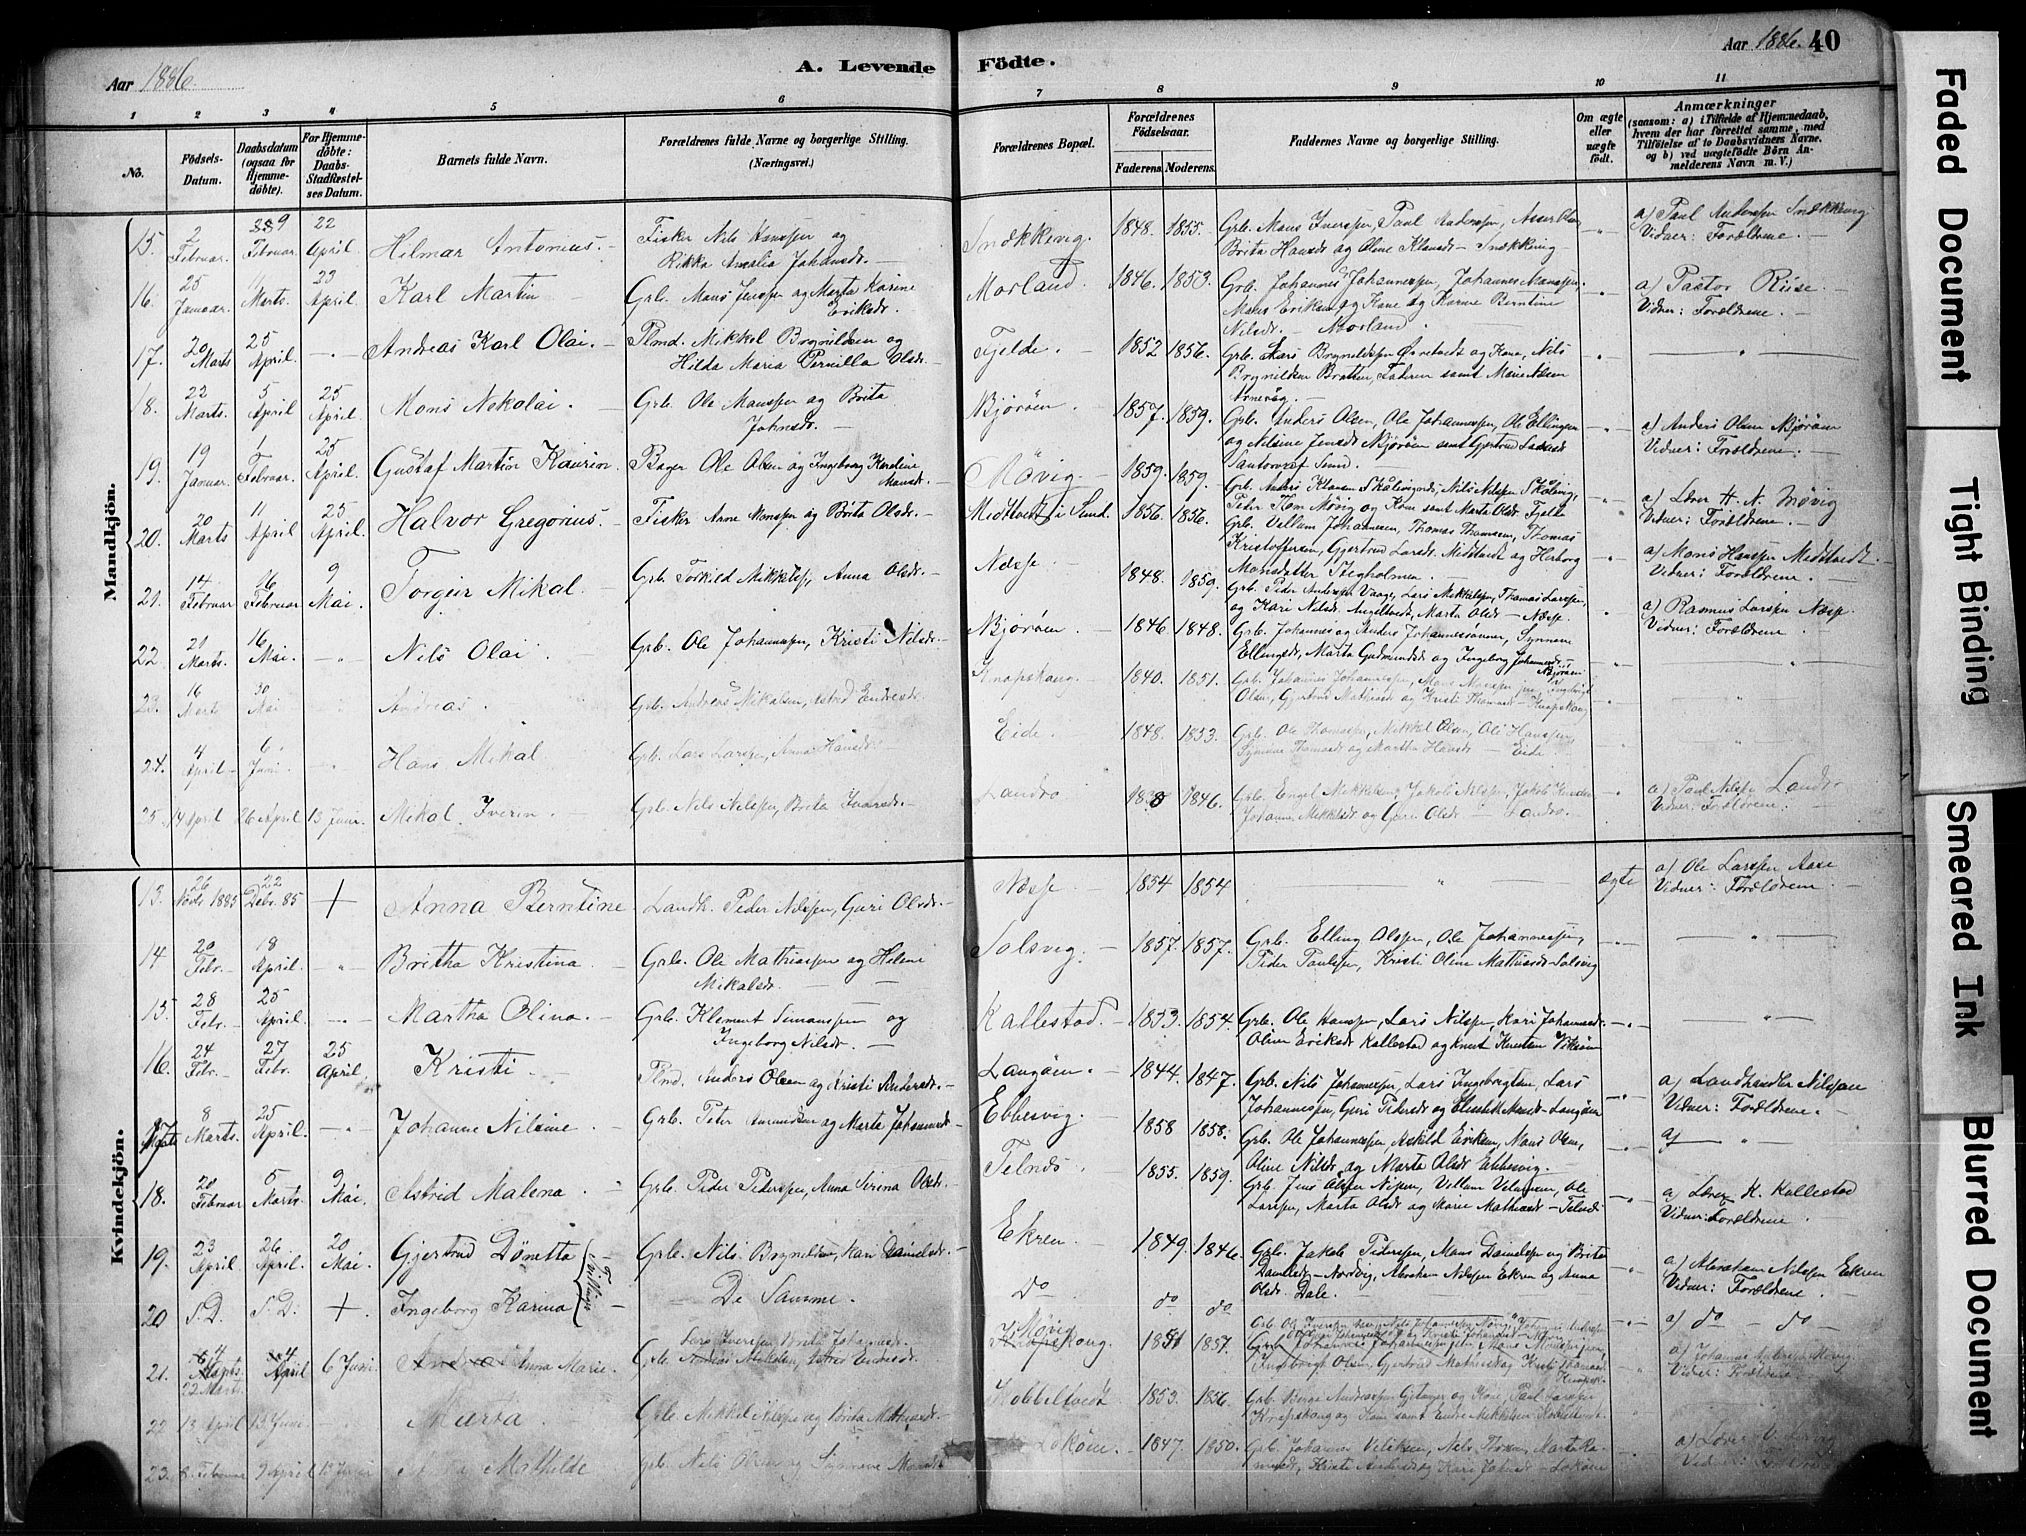 Aar 1886.
A. Levende Födte.
Aar 1886. 40
1 2 3 4 5 6 7 8 9 10 11
No.
Födsels-Datum.
Daabsdatum (ogsaa for Hjemmedöbte).
For Hjemmedöbte: Daabs-Stadfæstelses Datum.
Barnets fulde Navn.
Forældrenes fulde Navne og borgerlige Stilling. (Næringsvei.)
Forældrenes Bopæl.
Forældrenes Födselsaar.
Faderens. Moderens.
Faddernes Navne og borgerlige Stilling.
Om ægte eller uægte födt.
Anmærkninger
(saasom: a) i Tilfælde af Hjemmedaab, hvem der har forrettet samme, med Tilföielse af to Daabsvidners Navne, og b) ved uægtefödte Börn Anmelderens Navn m. V.)
Mandkjön.
15. 2 Februar. 9 Februar. 22 April. Hilmar Antonius. Fisker Nils Hanssen og Rikka Amalia Johansdr. Snækkevig. 1848. 1855. Grb. Mans Iverssen, Paul Anderssen, Brita Hansdr og Oline Klausdr - Snækkevig a) Paul Anderssen Snækkevig. Vidner: Forældrene.
16. 25 Januar. 11 Marts. 23 April. Karl Martin Grb. Mons Jenssen og Marta Karine Eriksdr. Morland. 1846. 1853. Grb. Johannes Johannessen, Johannes Monssen, Mons Eriksen og Kone og Karine Berntine Nilsdr. - Morland a) Pastor Riise. Vidner: Forældrene.
17. 20 Marts 25 April. Andreas Karl Olai. Plmd. Mikkel Brynildsen og Hilda Maria Pernilla Olsdr. Fjelde. 1852 1856. Grb. Lars Brynildssen og Kone, Nils Brynildsen Bratten, Faderen samt Marie Olsen
18. 22 Marts. 5 April 25 April Mons Nikolai. Grb. Ole Monssen og Brita Johnsdr. Björöen. 1857. 1859. Grb. Anders Olsen, Ole Johannessen, Ole Ellingsen og Nilsine Jensdr Björöen samt Gjertrud a) Anders Olsen Björöen Vidner: Forældrene.
19. 19 Januar. 1 Februar. 25 April. Gustaf Martin Kaurin. Bager Ole Olsen og Ingeborg Kardine Monsdr. Mövig. 1859. 1859. Grb. Anders Klausen Skålevig, Nils Nilssen Skålevig, Peder Mövig og Kone samt Marta Olsdr. Fjelle a) Lærer H. N. Mövig Vidner: Forældrene.
20. 20 Marts 11 April 25 April. Halvor Gregorius. Fisker Arne Monssen og Brita Olsdr. Midttvedt i Sund. 1856. 1856. Grb. Vellum Johannessen, Thomas Thomsen, Thomas Kristoffersen, Gjertrud Larsdr. Midttvedt og Herborg Monsdatter Stegholmen. a) Mons Hanssen Midttvedt. Vidner: Forældrene.
21. 14 Februar 16 Februar 9 Mai. Torgeir Mikal. Grb. Torkild Mikkelsen, Anna Olsdr. Næsse. 1848. 1859. Grb. Peder Anderssen Vaage, Lars Mikkelsen, Thomas Larssen, og Kari Nilsdr. Angeltvedt, Marta Olsdr - Næsse. a) Rasmus Larssen Næsse. Vidner: Forældrene.
22. 21 Marts. 16 Mai. Nils Olai. Grb. Ole Johannessen, Kristi Nilsdr. Björöen. 1846. 1848. Grb. Johannes og Anders Johannessönner, Synneve Ellingsdr, Marta Gudmundsdr og Ingeborg Johannesdr. Björöen
23. 16 Marts 30 Mai Andreas. Grb. Andreas Mikalsen, Astrid Endresdr. Knapskong. 1840. 1851. Grb. Johannes Johannessen, Mons Monssen jun., Ingebrigt Olsen, Gjertrud Mathiasdr og Kristi Thomasdr - Knapskong
24. 4 April 6 Juni. Hans Mikal Grb. Lars Larssen, Anna Hansdr. Eide. 1848. 1853. Grb. Ole Thomassen, Mikkel Olsen, Ole Hanssen, Synneve Thomasdr og Martha Hansdr - Eide.
25. 14 April 26 April 13 Juni. Mikal Iverin. Grb. Nils Nilssen, Brita Ivarsdr. Landro 1838 1846. Grb. Engel Mikkelsen, Jakob Nilssen, Jakob Knudsen, Johanne Mikkelsdr og Guri Olsdr - Landro. a) Paul Nilssen Landro Vidner: Forældrene.
Kvindekjön.
13. 26 Novbr 1885 22 Debr. 85 + Anna Berntine Landh. Peder Nilssen, Guri Olsdr. Næsse. 1854 1854 ægte a) Ole Larssen Aase Vidner: Forældrene.
14. 20 Febr. 18 April. Britha Kristina Grb. Ole Mathiassen og Helene Mikalsdr. Solsvig. 1857. 1857. Grb. Elling Olssen, Ole Johannessen, Peder Paulssen, Kristi Oline Mathiasdr - Solsvig
15. 28 Febr. 25 April. Martha Olina. Grb. Klement Simonssen og Ingeborg Nilsdr. Kallestad. 1853. 1854. Grb. Ole Hanssen, Lars Nilssen, Kari Johannesdr. Oline Eriksdr Kallestad og Knut Knutsen Viksöen
16. 24 Febr. 27 Febr. 25 April. Kristi. Plmd. Anders Olsen og Kristi Andersdr. Langöen. 1844. 1847. Grb. Nils Johannessen, Lars Ingebrigtsen, Lars Johannessen, Guri Pedersdr og Elisabeth Monsdr - Langöen a) Landhandler Nilssen Vidner: Forældrene.
17. 8 Marts. 25 April. Johanne Nilsine. Grb. Peter Amundsen og Marta Johannesdr. Ebbesvig. 1858 1858. Grb. Ole Johannessen, Askild Eriksen, Mons Olsen, Oline Nilsdr og Marta Olsdr Ebbesvig. a)
18. 20 Februar 5 Marts. 9 Mai. Astrid Malena. Grb. Peder Pederssen, Anna Serina Olsdr. Telnes. 1855. 1859. Grb. Jens Olsen, Vellum Velumsen, Ole Larssen, Marta Olsdr og Marie Mathiasdr - Telnes a) Lærer K. Kallestad Vidner: Forældrene.
19. 23 April 26 April. 20 Mai. Gjertrud Dönetta Tvillinger Grb. Nils Brynildsen, Kari Danielsdr. Ekren. 1849. 1846. Grb. Jakob Pederssen, Mons Danielssen og Brita Danielsdr - Nordvig, Abraham Nilssen Ekren og Anna Olsdr. Dale. a) Abraham Nilssen Ekren Vidner: Forældrene.
20 S.D. S.D. + Ingeborg Karina De Samme. do do do a) do - do
21. 4 Marts 22 Marts. 4 April 6 Juni. Anna Marie. Lars Iverssen, Brita Johannesdr. Grb. Andreas Mikalsen, Astrid Endresdr. Mövig Knapskong. 1851 1857. Grb. Johannes Johannessen jun. Mons Monssen jun, Ingebrigt Olsen, Gjertrud Mathiasdr og Kristi Thomasdr Knapsk. a) Johannes Anderssen Mövig. Vidner: Forældrene.
22 13 April 13 Juni. Marta. Grb. Mikkel Nilssen og Brita Mathiasdr. Kobbeltvedt 1853. 1856. Grb. Börge Andreassen og Kone, Paul Larssen Knapskong og Kone samt Endre Mikkelsen Kobbeltvedt.
23. 8 Februar 9 April 13 Juni Mathilde Grb. Nils Olsen og Synneve Monsdr. Loköen. 1847. 1850. Grb. Johannes Villiksen, Nils Marta Rasmusdr, Kristi Andersdr og Kari Johnsdr - Loköen a) Lærer
Faded Document
Tight Binding
Smeared Ink
Blurred Document